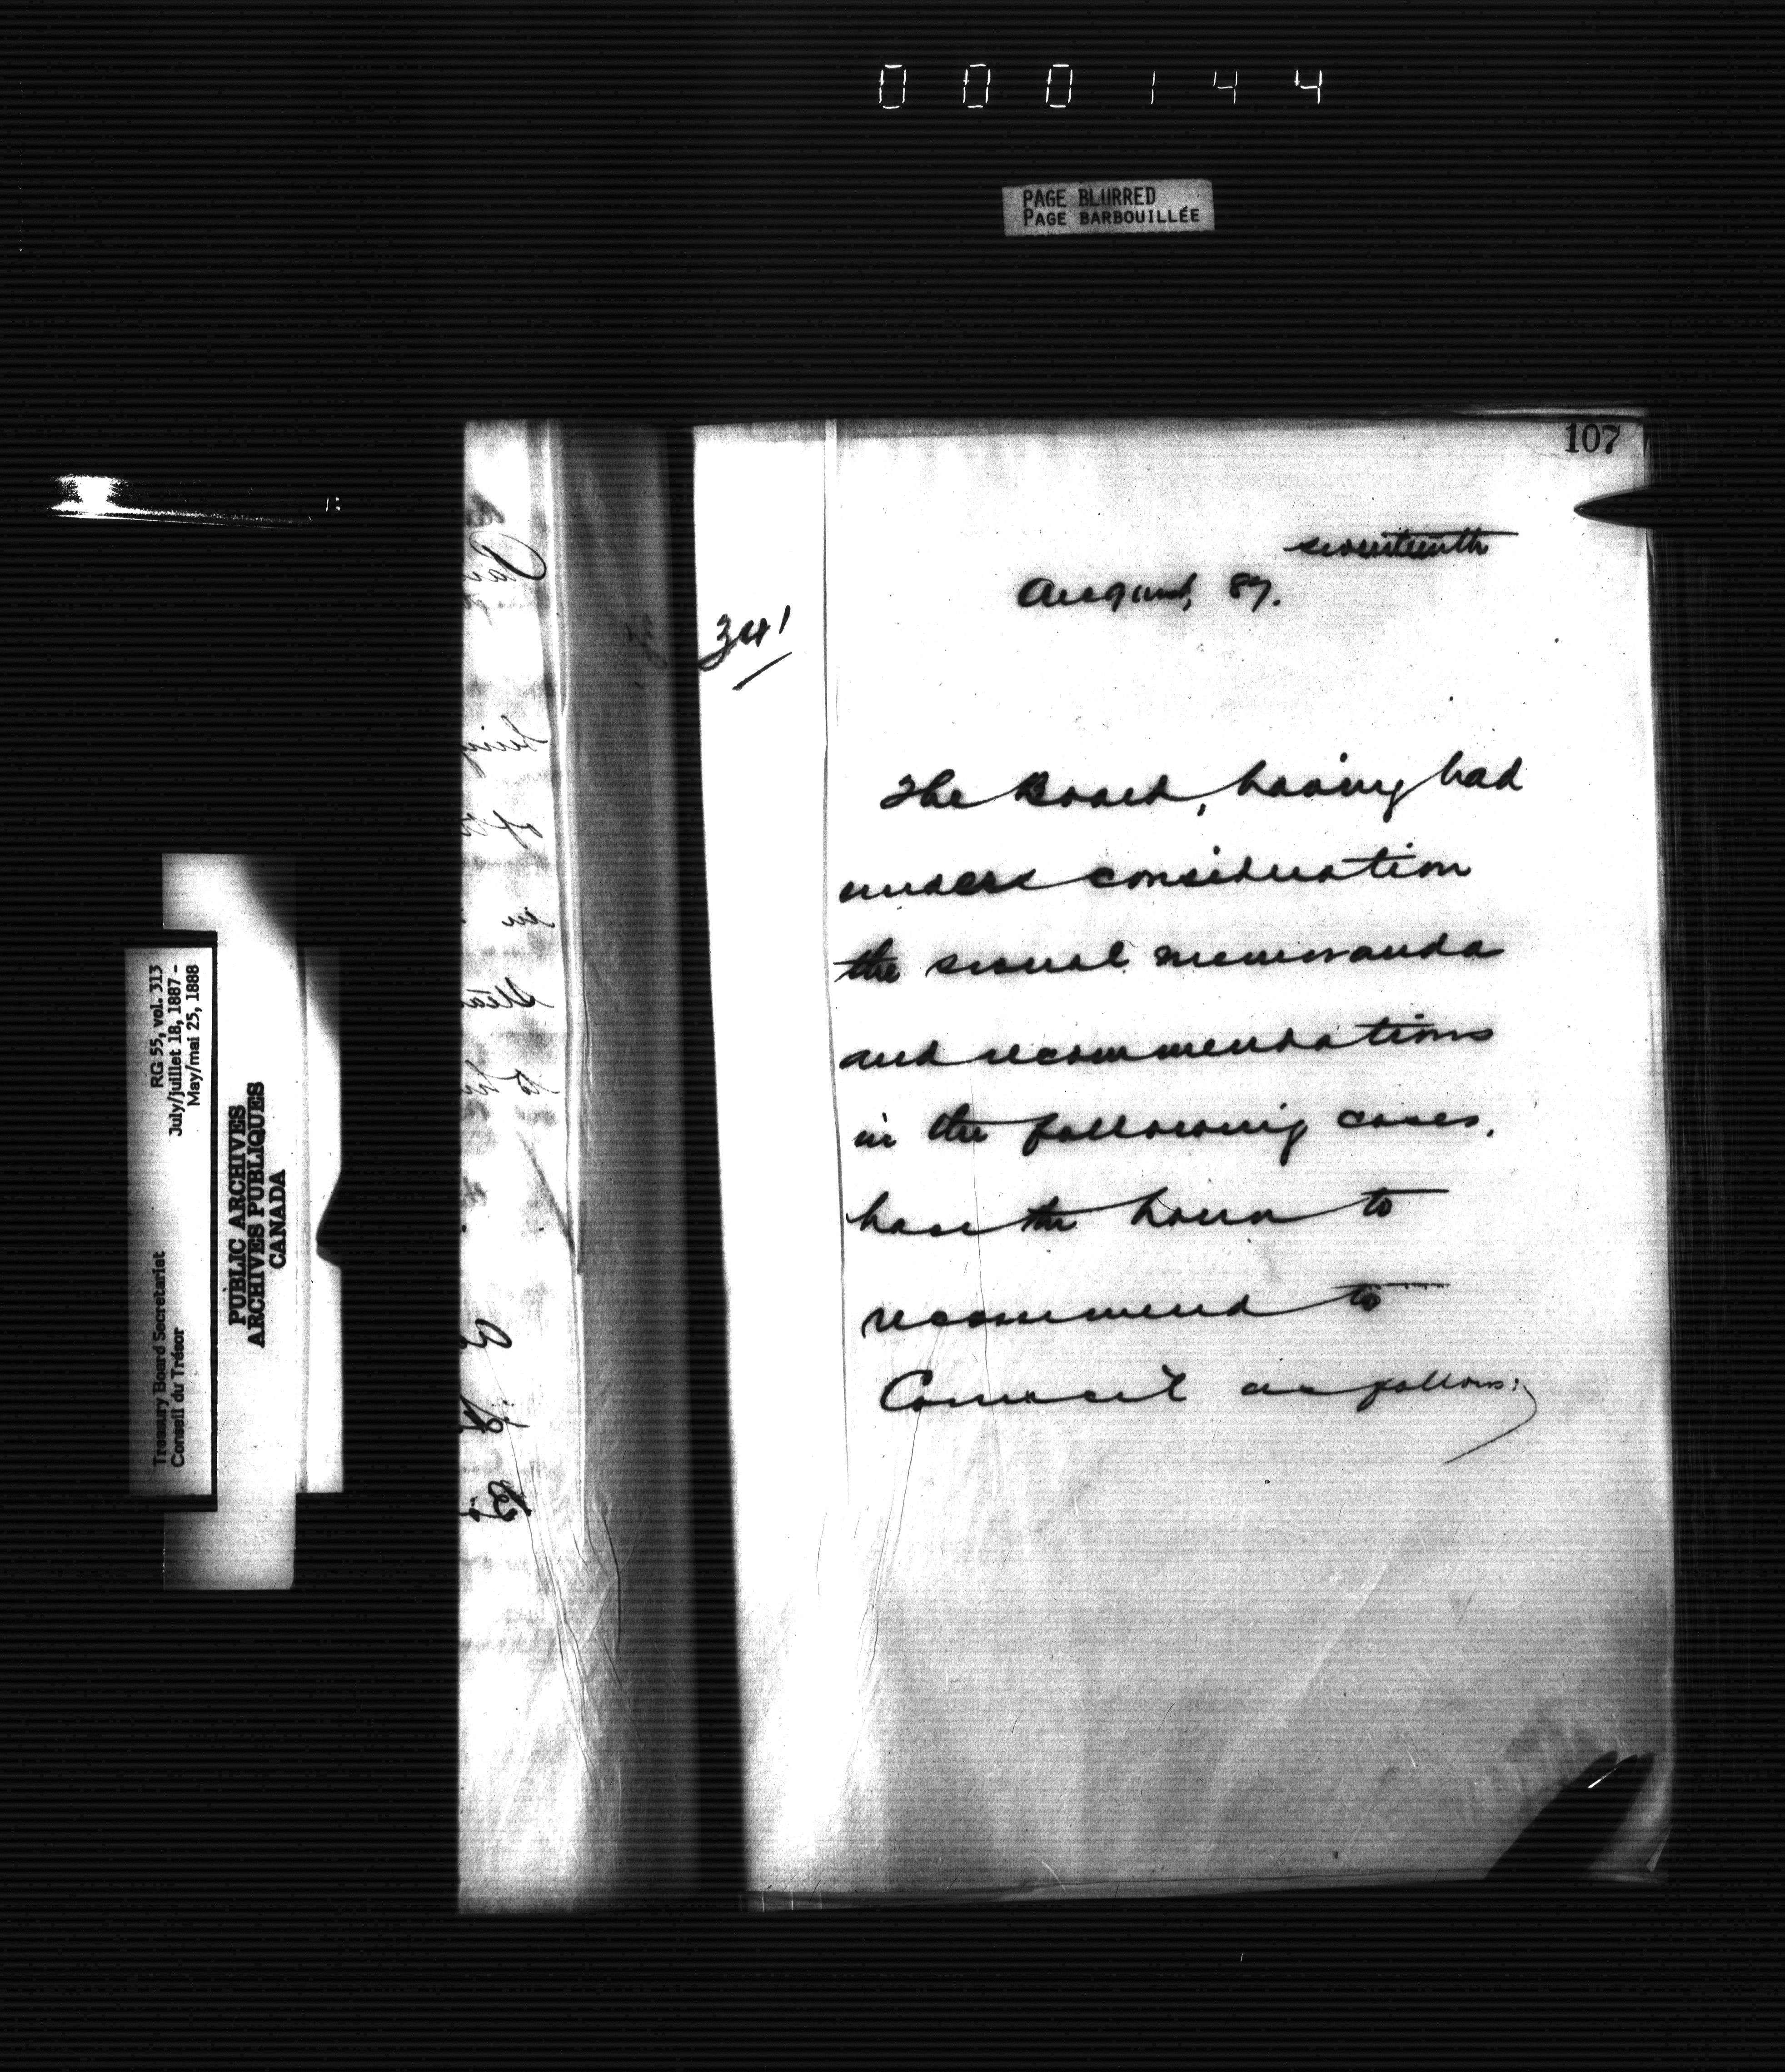 000144
PAGE BLURRED
PAGE BARBOUILLÉE
107
seventeenth
August, 87.
341
The Board, having had
under consideration
the several memoranda
and recommendations
in the following cases,
have the honor to
recommend to
Council as follows:
Treasury Board Secretariat
Conseil du Trésor
RG 55, vol. 313
July/juillet 18, 1887 -
May/mai 25, 1888
PUBLIC ARCHIVES
ARCHIVES PUBLIQUES
CANADA